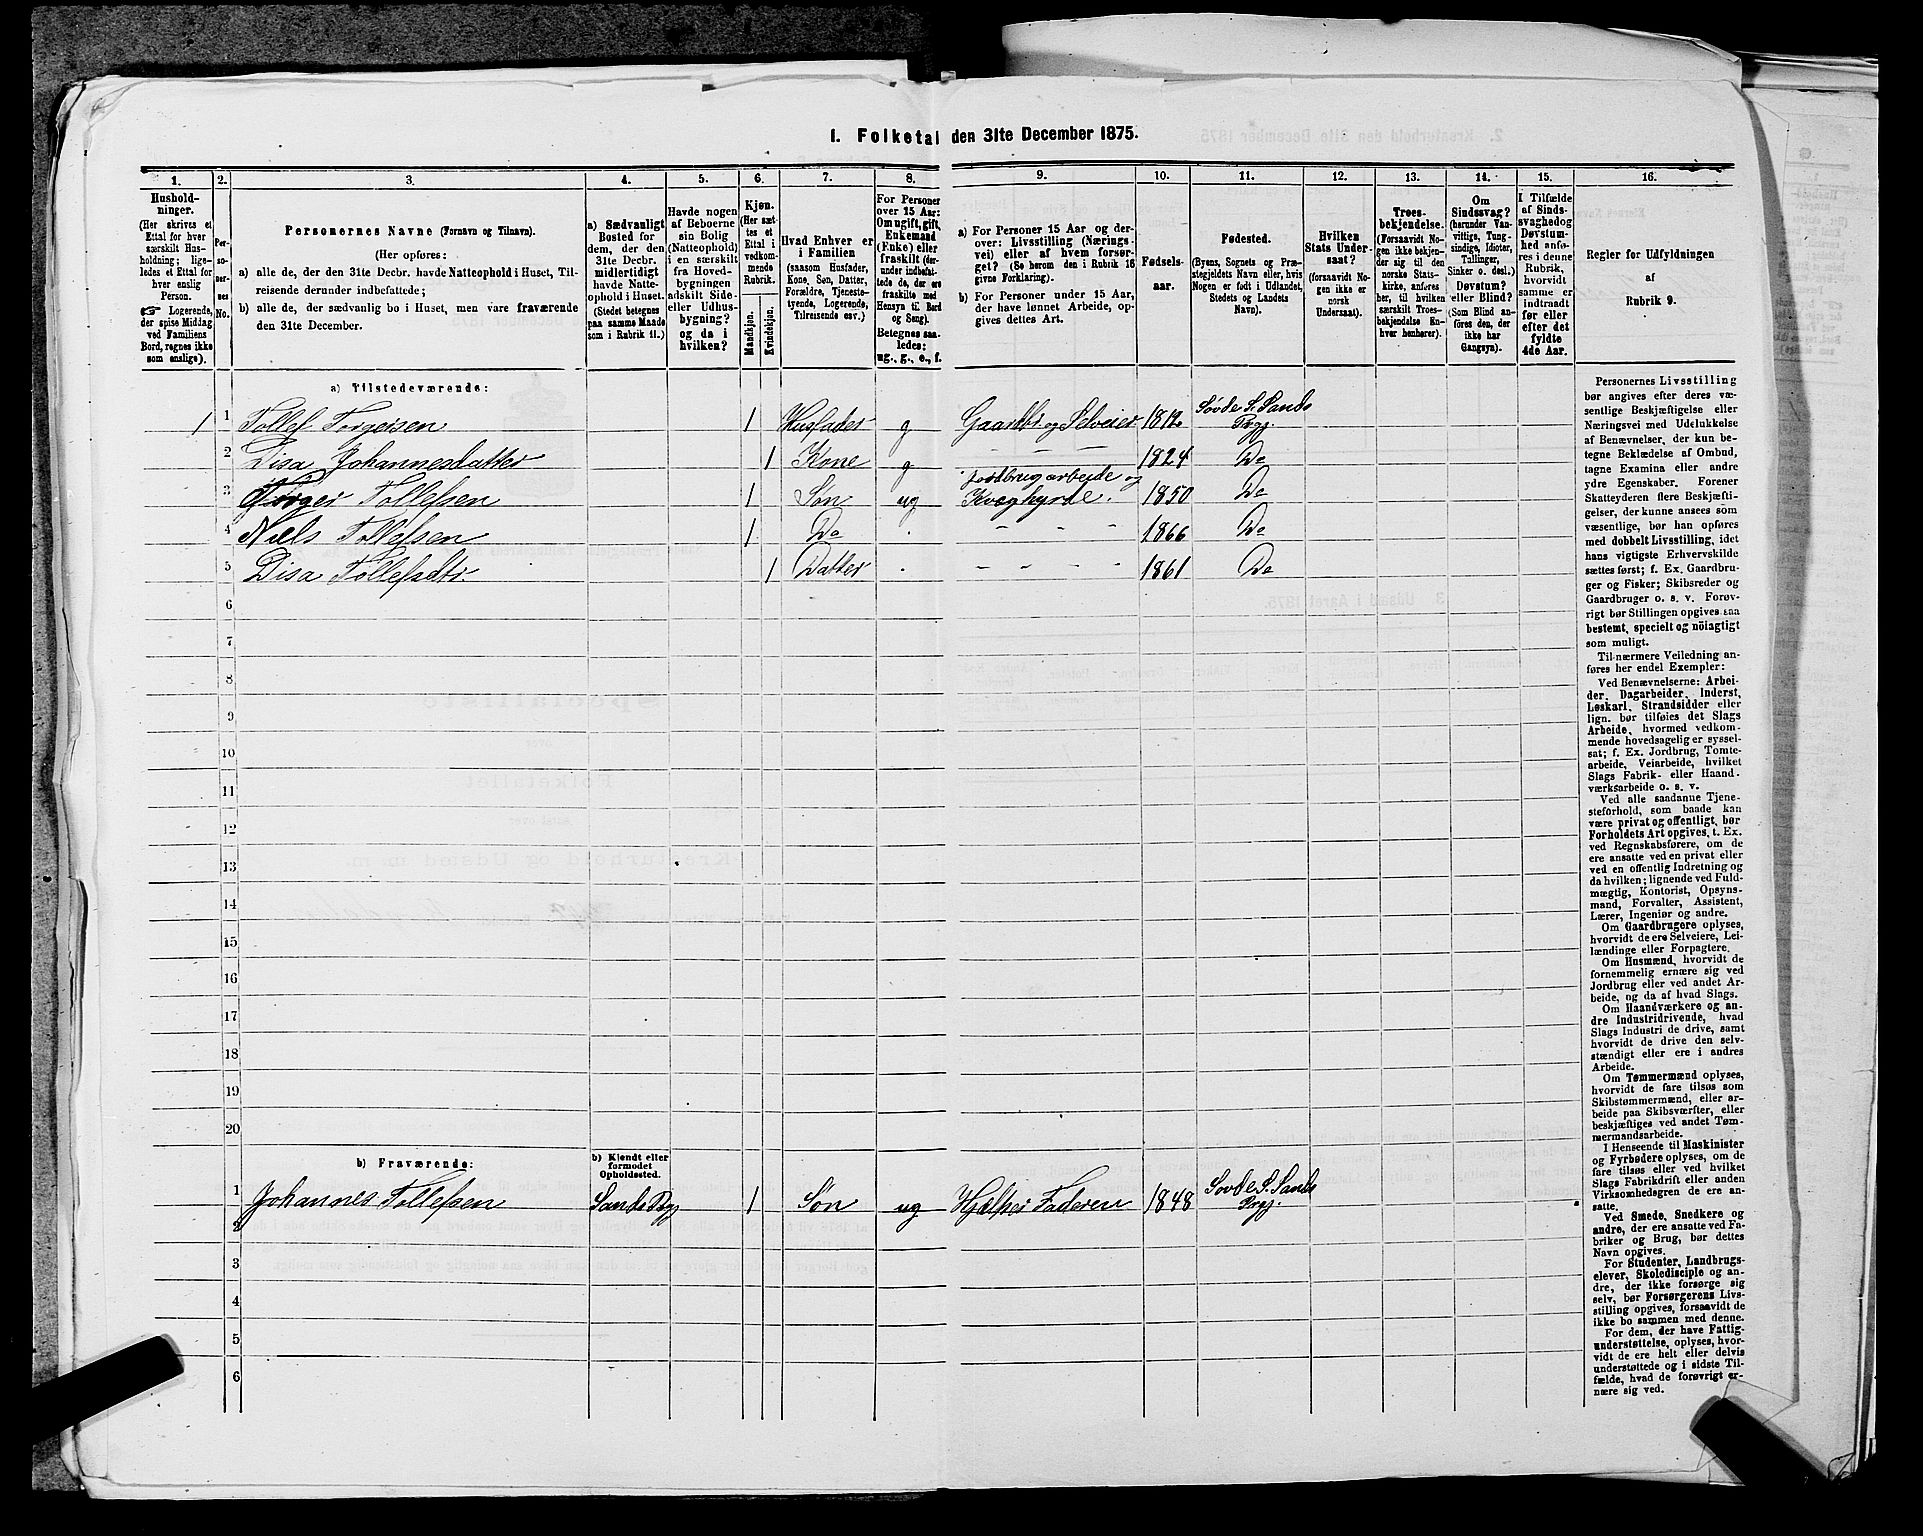 1. Folketal den 31te December 1875.
1. 2. 3. 4. 5. 6. 7. 8. 9. 10. 11. 12. 13. 14. 15. 16.
Hushold-
ninger.
(Her skrives et
Ettal for hver
særskilt Hus-
holdning; lige-
ledes et Ettal for
hver enslig
Person.
☞ Logerende,
der spise Middag
ved Familiens
Bord, regnes ikke
som enslige).
Per-
so-
ner-
nes
No.
Personernes Navne (Fornavn og Tilnavn).
(Her opføres:
a) alle de, der den 31te Decbr. havde Natteophold i Huset, Til-
reisende derunder indbefattede;
b) alle de, der sædvanlig bo i Huset, men vare fraværende
den 31te December.
a) Sædvanligt
Bosted for
dem, der den
31te Decbr.
midlertidigt
havde Natte-
ophold i Huset.
(Stedet betegnes
paa samme Maade
som i Rubrik 11.)
Havde nogen
af Beboerne
sin Bolig
(Natteophold)
i en særskilt
fra Hoved-
bygningen
adskilt Side-
eller Udhus-
bygning?
og da i
hvilken?
Kjøn.
(Her sæt-
tes et
Ettal i
vedkom-
mende
Rubrik.
Mandkjøn.
Kvindekjøn.
Hvad Enhver er
i Familien
(saasom Husfader,
Kone, Søn, Datter,
Forældre, Tjeneste-
tyende, Logerende,
Tilreisende osv.)
For Personer
over 15 Aar:
Om ugift, gift,
Enkemand
(Enke) eller
fraskilt (der-
under indbefat-
tede de, der ere
fraskilte med
Hensyn til Bord
og Seng).
Betegnes saa-
ledes:
ug., g., e., f.
a) For Personer 15 Aar og der-
over: Livsstilling (Nærings-
vei) eller af hvem forsør-
get? (Se herom den i Rubrik 16
givne Forklaring).
b) For Personer under 15 Aar,
der have lønnet Arbeide, op-
gives dettes Art.
Fødsels-
aar.
Fødested.
(Byens, Sognets og Præ-
stegjeldets Navn eller, hvis
Nogen er født i Udlandet,
Stedets og Landets
Navn).
Hvilken
Stats Under-
saat?
(forsaavidt No-
gen ikke er
norsk
Undersaat).
Troes-
bekjendelse.
(Forsaavidt No-
gen ikke bekjen-
der sig til den
norske Stats-
kirke, anføres
her, til hvilken
særskilt Troes-
bekjendelse En-
hver henhører).
Om
Sindssvag?
(herunder Van-
vittige, Tung-
sindige, Idioter,
Tullinger,
Sinker o. desl.)
Døvstum?
eller Blind?
(Som Blind an-
føres den, der
ikke har
Gangsyn).
I Tilfælde
af Sinds-
svaghed og
Døvstum-
hed anfø-
res i denne
Rubrik,
hvorvidt
samme er
indtraadt
før eller
efter det
fyldte
4de Aar.
Regler for Udfyldningen
af
Rubrik 9.
a) Tilstedeværende:
1 1 Tollef Torgersen 1 Husfader g Gaardbr og Selveier 1812 Søvde S. Sands Prgj.
2 Disa Johannesdatter 1 Kone g - - - 1824 Do
3 Torger Tollefsen 1 Søn ug Jordbrugarbeide og Kvæghyrde. 1850 Do
4 Niels Tollefsen 1 Do - - - 1866 Do
5 Disa Tollefsdtr. 1 Datter - - - 1861 Do
6
7
8
9
10
11
12
13
14
15
16
17
18
19
20
b) Fraværende:
b) Kjendt eller
formodet
Opholdssted.
1 Johannes Tollefsen Sands Prgj 1 Søn ug Hjælper Faderen 1848 Sovde S. Sands Prgj.
2
3
4
5
6
Personernes Livsstilling
bør angives efter deres væ-
sentlige Beskjæftigelse eller
Næringsvei med Udelukkelse
af Benævnelser, der kun be-
tegne Beklædelse af Ombud,
tagne Examina eller andre
ydre Egenskaber. Forener
Skatteyderen flere Beskjæfti-
gelser, der kunne ansees som
væsentlige, bør han opføres
med dobbelt Livsstilling, idet
hans vigtigste Erhvervskilde
sættes først; f. Ex. Gaardbru-
ger og Fisker; Skibsreder og
Gaardbruger o. s. v. Forøv-
rigt bør Stillingen opgives saa
bestemt, specielt og nöiagtigt
som muligt.
Til nærmere Veiledning an-
føres her endel Exempler:
Ved Benævnelserne: Arbei-
der, Dagarbeider, Inderst,
Løskarl, Strandsidder eller
lign. bør tilføies det Slags
Arbeide, hvormed vedkom-
mende hovedsagelig er syssel-
sat; f. Ex. Jordbrug, Tomte-
arbeide, Veiarbeide, hvilket
Slags Fabrik- eller Haand-
værksarbeide o. s. v.
Ved alle saadanne Tjene-
steforhold, som baade kan
være privat og offentligt, bør
Forholdets Art opgives, t. Ex.
ved Regnskabsførere, om de
ere ansatte ved en privat eller
ved en offentlig Indretning og
da hvilken; lignende ved Fuld-
mægtig, Kontorist, Opsyns-
mand, Forvalter, Assistent,
Lærer, Ingeniør og andre.
Om Gaardbrugere oplyses,
hvorvidt de ere Selveiere, Lei-
lændinge eller Forpagtere.
Om Husmænd, hvorvidt de
fornemmelig ernære sig ved
Jordbrug eller ved andet Ar-
beide, og da af hvad Slags.
Om Haandværkere og an-
dre Industridrivende, hvad
Slags Industri de drive, samt
hvorvidt de drive den selv-
stændigt eller ere i andres
Arbeide.
Om Tømmermænd oplyses,
hvorvidt de fare tilsøs som
Skibstømmermænd, eller ar-
beide paa Skibsværfter, eller
beskjæftiges ved andet Tøm-
mermandsarbeide.
I Henseende til Maskinister
og Fyrbødere oplyses, om de
fare tilsøs eller ved hvilket
Slags Fabrikdrift eller anden
Virksomhedsgren de ere an-
satte.
Ved Smede, Snedkere og
andre, der ere ansatte ved Fa-
briker og Brug, bør dettes
Navn opgives.
For Studenter, Landbrugs-
elever, Skoledisciple og an-
dre, der ikke forsørge sig
selv, bør Forsørgerens Livs-
stilling opgives, forsaavidt de
ikke bo sammen med denne.
For dem, der have Fattig-
understøttelse, oplyses, hvor-
vidt de ere helt eller delvis
understøttede og i sidste Til-
fælde, hvad de forøvrigt er-
nære sig ved.